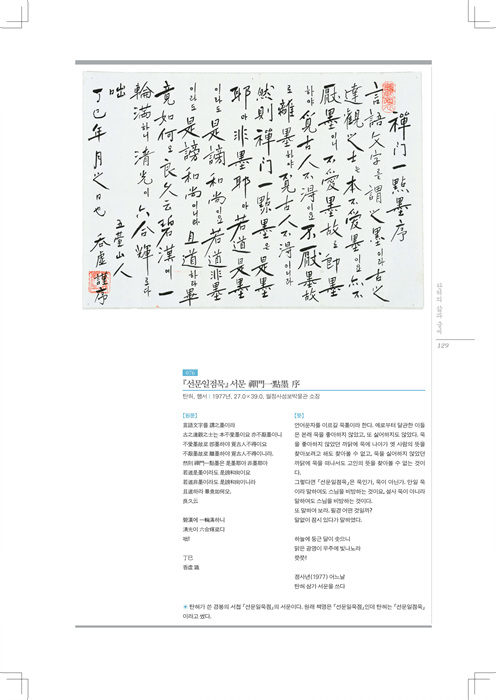 禪门一點墨序
言語文字를 謂之墨이라 古之
達觀之士는 本不愛墨이요 亦不
厭墨이니 不愛墨故로 即墨
하야 覓古人不得이요 不厭墨故
로 離墨하야 覓古人不得이니라
然則 禪门一點墨은 是墨
耶아 非墨耶아 若道是墨
이라도 是謗和尚이요 若道非墨
이라도 是謗和尚이니라 且道하라 畢
竟如何오 良久云 碧漢에 一
輪滿하니 淸光이 六合輝로다
咄
丁巳年 月之日也
五臺山人
呑虛 謹序
탄허의 삶과 글씨
129
『선문일점묵』 서문 禪門一點墨 序
탄허, 행서 : 1977년, 27.0×39.0, 월정사성보박물관 소장
[원문]
言語文字를 謂之墨이라
古之達觀之士는 本不愛墨이요 亦不厭墨이니
不愛墨故로 卽墨하야 覓古人不得이요
不厭墨故로 離墨하야 覓古人不得이니라.
然則 禪門一點墨은 是墨耶아 非墨耶아
若道是墨이라도 是謗和尙이요
若道非墨이라도 是謗和尙이니라
且道하라 畢竟如何오.
良久云
碧漢에 一輪滿하니
淸光이 六合輝로다
咄!
丁巳
呑虛 識
[역]
언어문자를 이르길 묵墨이라 한다. 예로부터 달관한 이들
은 본래 묵을 좋아하지 않았고, 또 싫어하지도 않았다. 묵
을 좋아하지 않았던 까닭에 묵에 나아가 옛 사람의 뜻을
찾아보려고 해도 찾아볼 수 없고, 묵을 싫어하지 않았던
까닭에 묵을 떠나서도 고인의 뜻을 찾아볼 수 없는 것이
다.
그렇다면 『선문일점묵』은 묵인가, 묵이 아닌가. 만일 묵
이라 말하여도 스님을 비방하는 것이요, 설사 묵이 아니라
말하여도 스님을 비방하는 것이다.
또 말하여 보라. 필경 어떤 것일까?
말없이 잠시 있다가 말하였다.
하늘에 둥근 달이 솟으니
맑은 광명이 우주에 빛나노라
쯧쯧!
정사년(1977) 어느날
탄허 삼가 서문을 쓰다
※ 탄허가 쓴 경봉의 서첩 『선문일묵점』의 서문이다. 원래 책명은 『선문일묵점』인데 탄허는 『선문일점묵』
이라고 썼다.